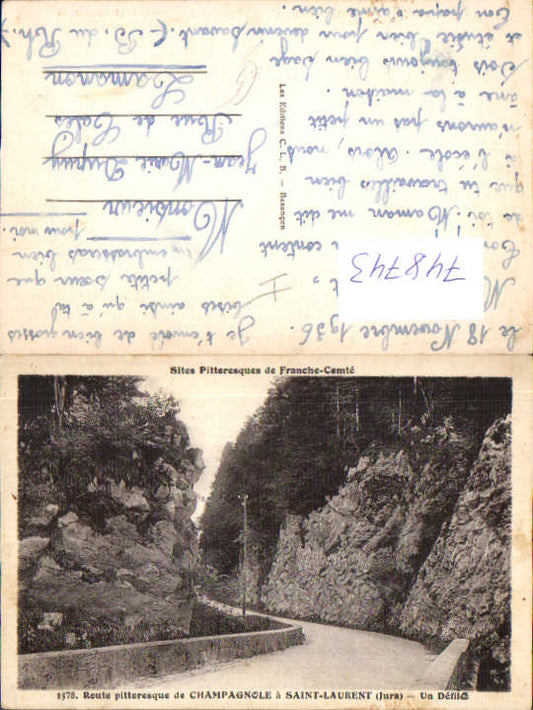 Le 18 Novembre 1936.
M
t
content
de toi. Maman me dit
que tu travailles bien
à l'école. Alors, nous
n'aurons pas un petit
âne à la maison.
Sois toujours bien sage
et étudie bien pour devenir savant. (B. du Rh.)
Ton papa t'aime bien.
Je t'envoie de bien grosses
bises ainsi qu'à ta
petite sœur que
tu embrasseras bien
pour moi.
748743
Les Editions C. L. B. — Besançon
Monsieur
Jean-Marie Dupuy
Rue de Cales
Lamanon
Sites Pittoresques de Franche-Comté
1578. Route pittoresque de CHAMPAGNOLE à SAINT-LAURENT (Jura) — Un Défilé